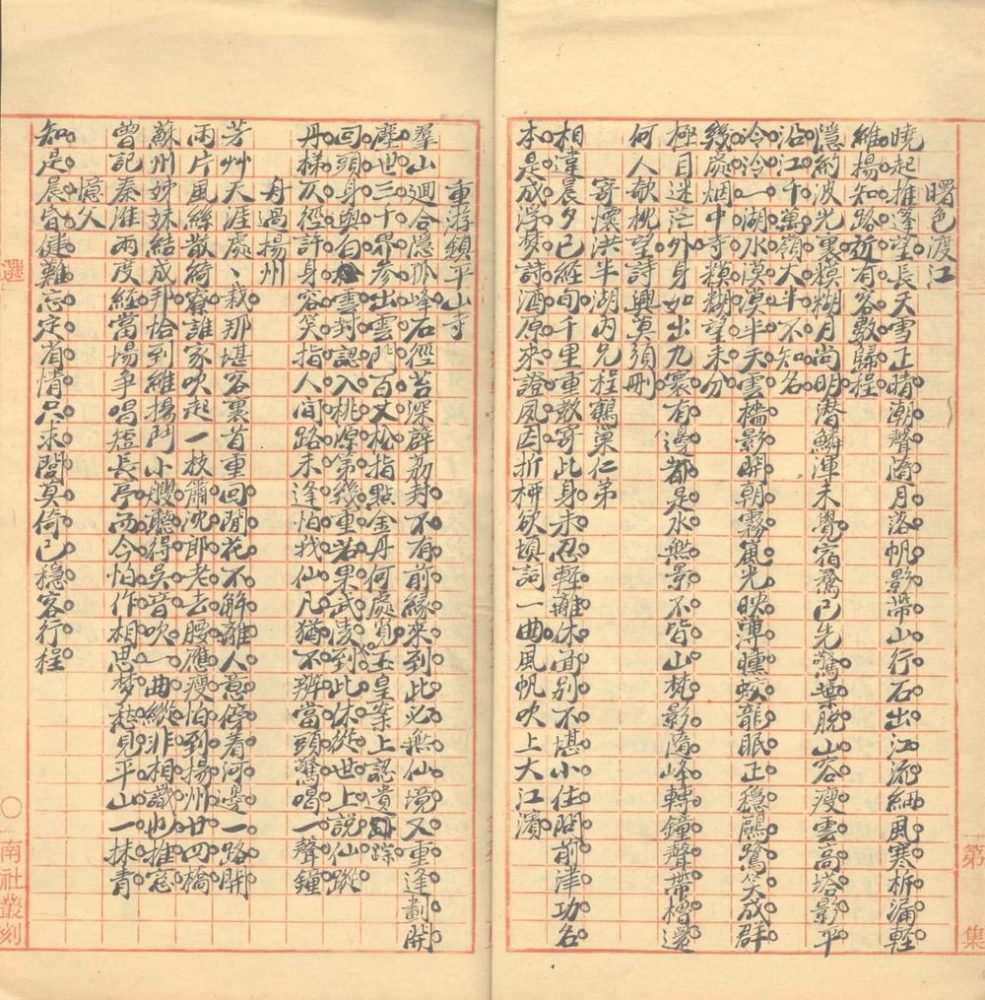 曙色渡江
曉起推篷望長天雪正晴潮聲瀹月落帆影帶山行石出江流細風寒柝漏輕
維揚知路近有客數歸程
隱約波光裏模糊月尚明潛鱗渾未覺宿鷺已先驚葉脫山容瘦雲高塔影平
沿江千萬嶺大半不知名
冷冷一湖水漠漠半天雲檣影開朝霧嵐光映薄曛蛟龍眠正穩鷗鷺笑成群
幾處烟中寺模糊望未分
極目迷茫外身如出九寰有邊都是水無景不皆山梵影隨峰轉鐘聲帶櫓還
何人歌枕望詩興莫須刪
寄懷洪半湖內兄程鶴巢仁弟
相違晨夕已經旬千里重教寄此身未忍輕離休面別不堪小住問前津功名
本是成浮夢詩酒原來證夙因折柳欲填詞一曲風帆吹上大江濱
重游鎮平山寺
羣山迴合隱孤峰石徑苔深薜荔封不有前緣來到此必無仙境又重逢劃開
塵世三千界參出雲門百丈松指點金丹何處覓玉皇案上認遺踪
回頭身與白雲封認入桃源第幾重若果武陵到此休從世上說仙蹤
丹梯仄徑許身容笑指人間路未逢怕我仙凡猶不辨當頭驚喝一聲鐘
舟過揚州
芳艸天涯處、栽那堪客裏首重回閒花不解離人意停着河邊一路開
兩片風絲散綺寮誰家吹起一枝簫沈郎老去腰應瘦怕到揚州廿四橋
蘇州姊妹結成邦恰到維揚鬥小艭聽得吴音吹一曲縱非相識也推窗
曾記秦淮兩度經當場爭唱短長亭而今怕作相思夢愁見平山一抹青
憶父
知是晨昏健難忘定省情只求閭莫倚已穩客行程
選
〇
南社叢刻
第
集